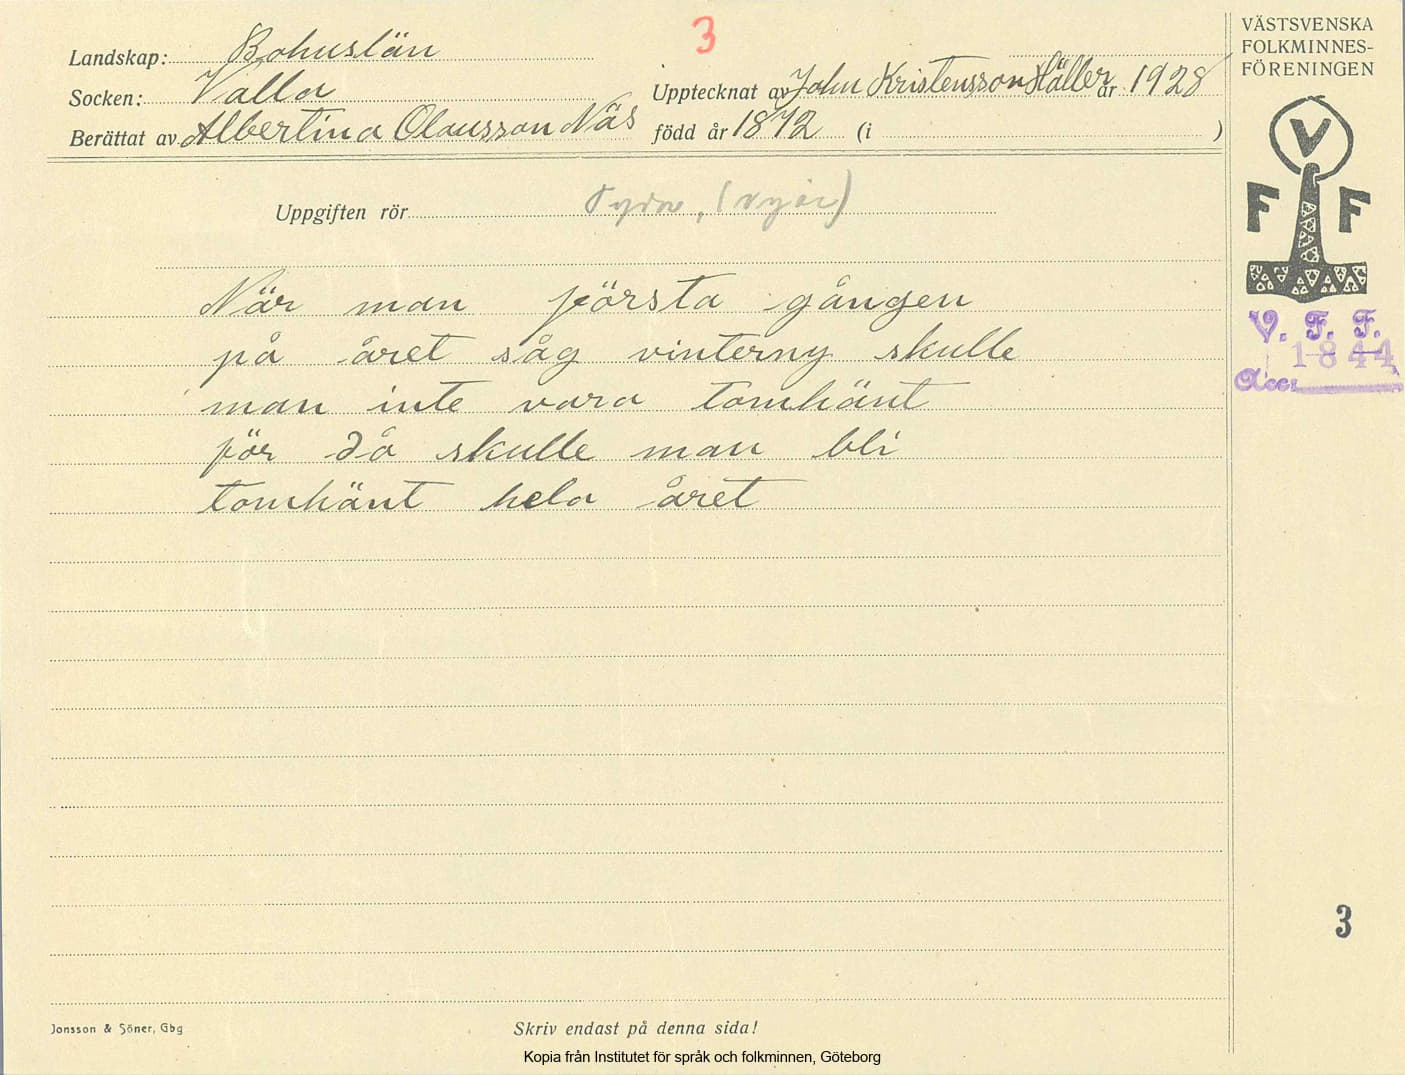 3
Landskap: Bohuslän
Socken: Valla
Upptecknat av John Kristensson Häller år 1928
Berättat av Albertina Olausson Näs
född år 1872 (i )
Uppgiften rör
När man första gången
på året såg vinterny skulle
man inte vara tomhänt
för då skulle man bli
tomhänt hela året
Jonsson & Söner, Gbg
Skriv endast på denna sida!
Kopia från Institutet för språk och folkminnen, Göteborg
VÄSTSVENSKA
FOLKMINNES-
FÖRENINGEN
V
F F
V. F. F.
1844
Acc:
3